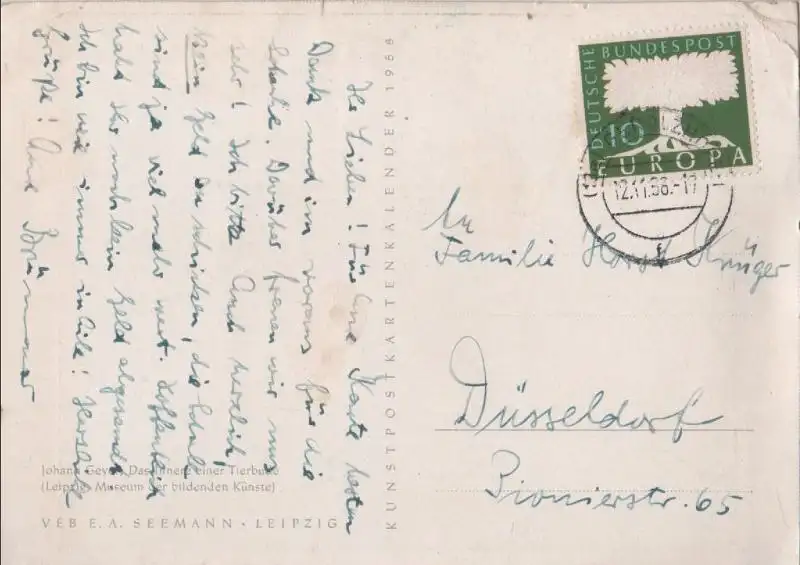 Ihr Lieben! Für Eure Karte besten
Dank und im voraus für die
Schuhe. Darüber freuen wir uns
sehr! Ich bitte Euch herzlich,
kein Geld zu schicken, die
sind ja viel mehr wert. Hoffentlich
habt Ihr noch kein Geld abgesandt.
Ich bin wie immer in Eile! Herzliche
Grüße! Eure
Johann Geyer, Das Innere einer Tierbude
(Leipzig, Museum der bildenden Künste)
VEB E. A. SEEMANN · LEIPZIG
KUNSTPOSTKARTENKALENDER 1958
DEUTSCHE BUNDESPOST
10
EUROPA
12.11.58.-17
An
Familie Horst Krüger
Düsseldorf
Pionierstr. 65